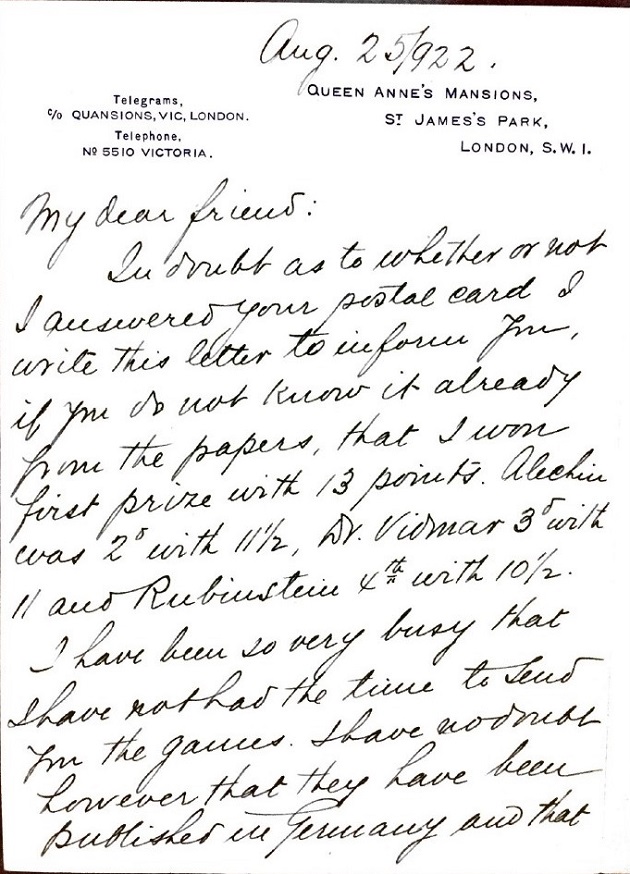 Aug. 25/922.
Telegrams,
c/o QUANSIONS, VIC, LONDON.
Telephone,
No 5510 VICTORIA.
QUEEN ANNE'S MANSIONS,
ST JAMES'S PARK,
LONDON, S.W.1.
My dear friend:
In doubt as to whether or not
I answered your postal card I
write this letter to inform you,
if you do not know it already
from the papers, that I won
first prize with 13 points. Alechin
was 2d with 11½, Dr. Vidmar 3d with
11 and Rubinstein 4th with 10½.
I have been so very busy that
I have not had the time to send
you the games. I have no doubt
however that they have been
published in Germany and that